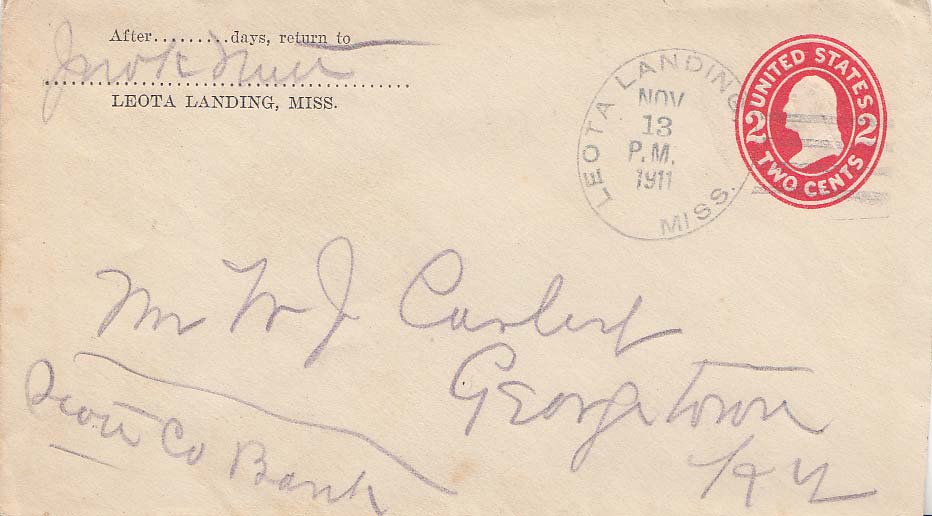 After.........days, return to
LEOTA LANDING, MISS.
LEOTA LANDING, MISS.
NOV
13
P.M.
1911
UNITED STATES
2 2
TWO CENTS
Mr W J
Georgetown
Ky
Scott Co Bank